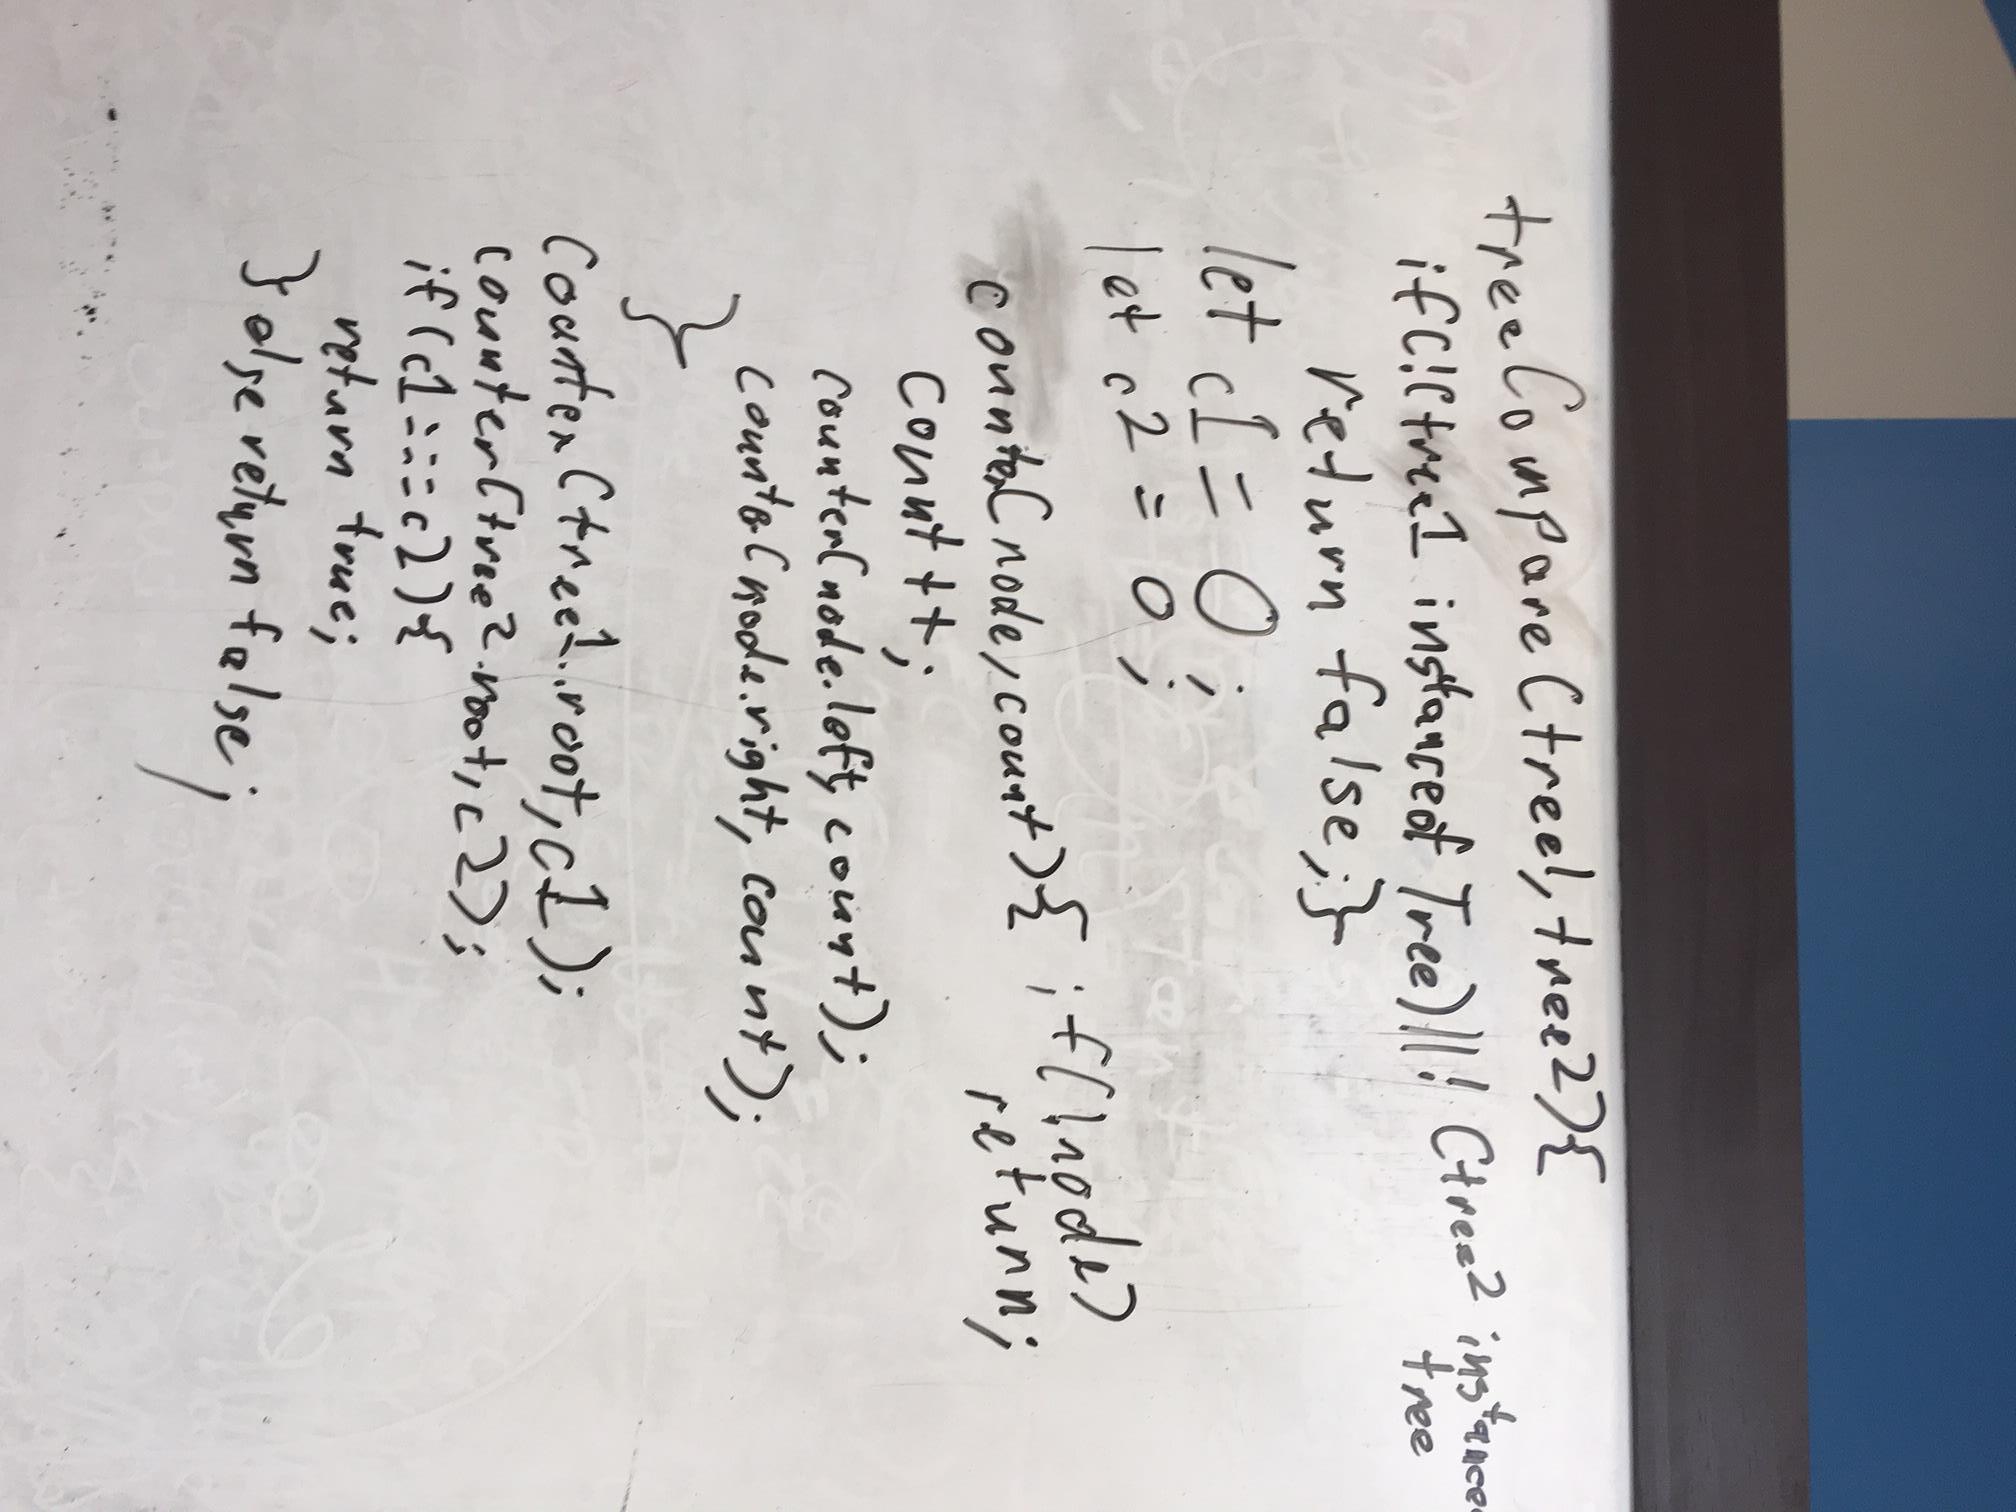 treeCompare(tree1, tree2){
if(!(tree1 instanceof Tree)||!(tree2 instance
tree
return false;}
let c1 = 0;
let c2 = 0;
counter(node, count){ if(!node)
return;
count++;
counter(node.left, count);
counter(node.right, count);
}
counter(tree1.root, c1);
counter(tree2.root, c2);
if(c1 === c2){
return true;
} else return false;